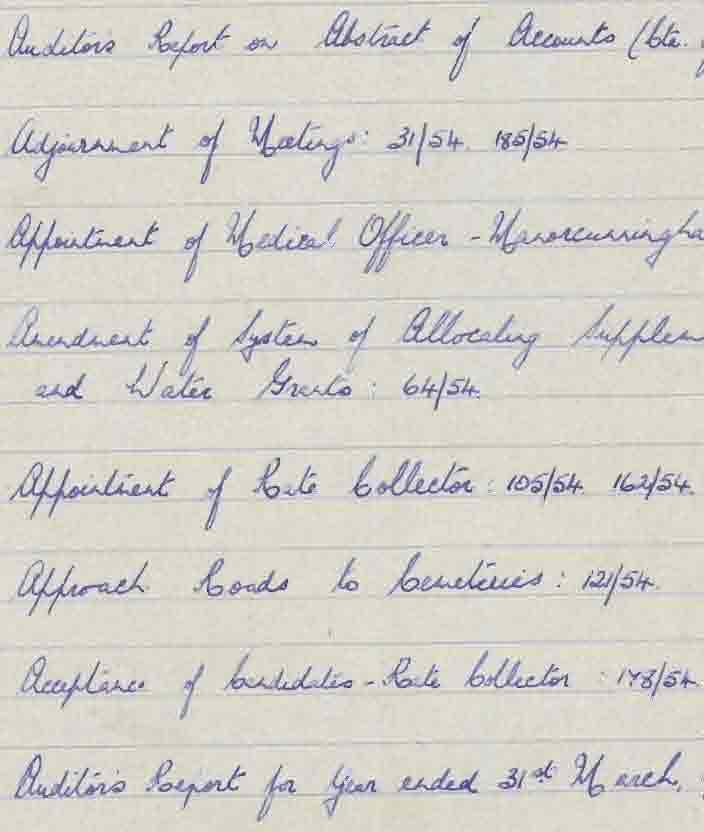 Auditors Report on Abstract of Accounts (
Adjournment of Meetings: 31/54. 185/54
Appointment of Medical Officer - Manorcunningha
Amendment of System of Allocating Supplem
and Water Grants: 64/54.
Appointment of Rate Collector: 105/54. 162/54.
Approach Roads to Cemeteries: 121/54.
Acceptance of Candidates - Rate Collector: 178/54.
Auditor's Report for Year ended 31st March,